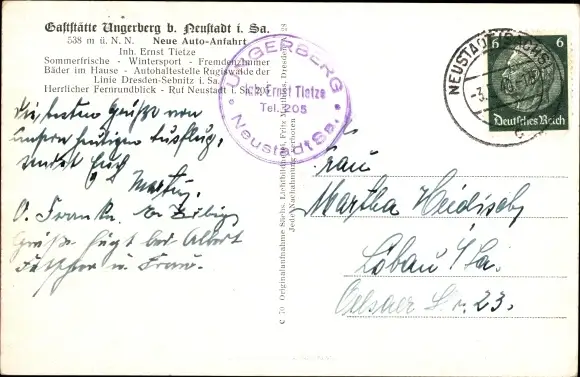 Gaststätte Ungerberg b. Neustadt i. Sa.
538 m ü. N. N. Neue Auto-Anfahrt
Inh. Ernst Tietze
Sommerfrische - Wintersport - Fremdenzimmer
Bäder im Hause - Autohaltestelle Rugiswalde der
Linie Dresden-Sebnitz i. Sa.
Herrlicher Fernrundblick - Ruf Neustadt i. Sa. 205
Die besten Grüße von
unserm heutigen Ausflug,
sendet Euch
O. Franke.
Grüße fügt bei Albert
u. Frau.
UNGERBERG
Ernst Tietze
Tel. 205
Neustadt Sa.
C 70 Originalaufnahme Sächs. Lichtbildverlag Fritz Dresden
Jede Nachahmung verboten
NEUSTADT (SACHS)
6 6
Deutsches Reich
Frau
Martha
Löbau i/Sa.
23.